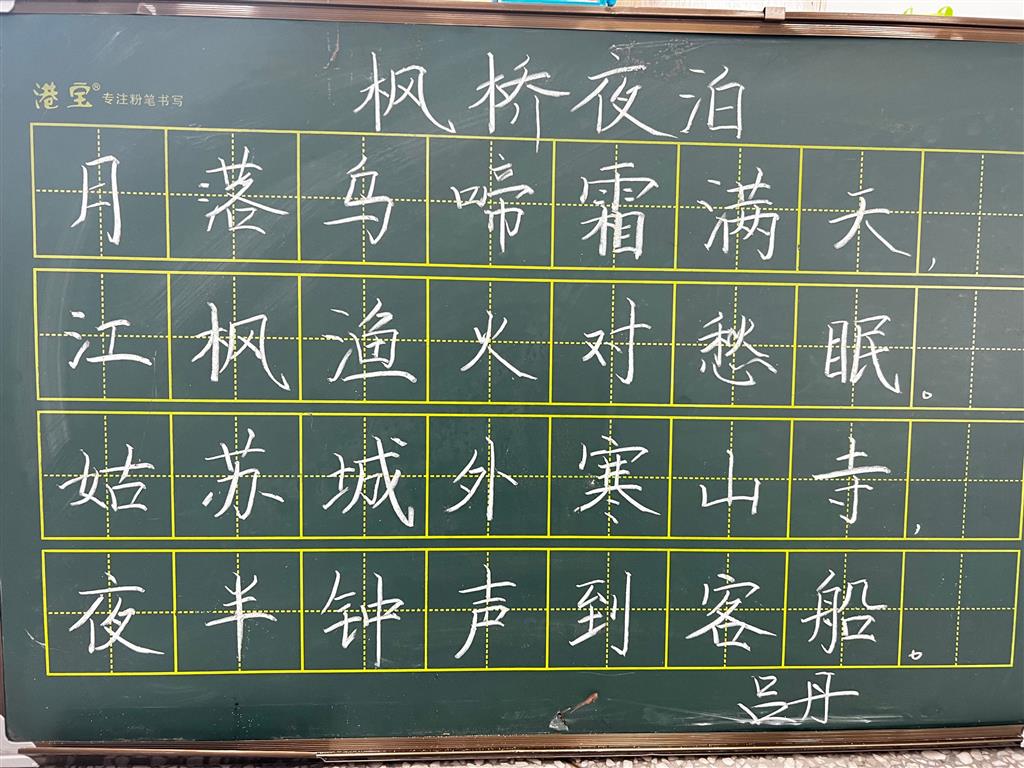 枫桥夜泊
港宝® 专注粉笔书写
月落乌啼霜满天,
江枫渔火对愁眠。
姑苏城外寒山寺,
夜半钟声到客船。
吕丹